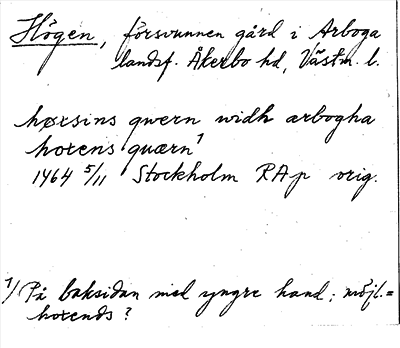 Högen, försvunnen gård i Arboga
landsf. Åkerbo hd, Västm. l.
høxsins qwern widh arbogha
hoxens quærn¹
1464 5/11 Stockholm RAp orig.
1/ På baksidan med yngre hand; möjl. =
hoxends?